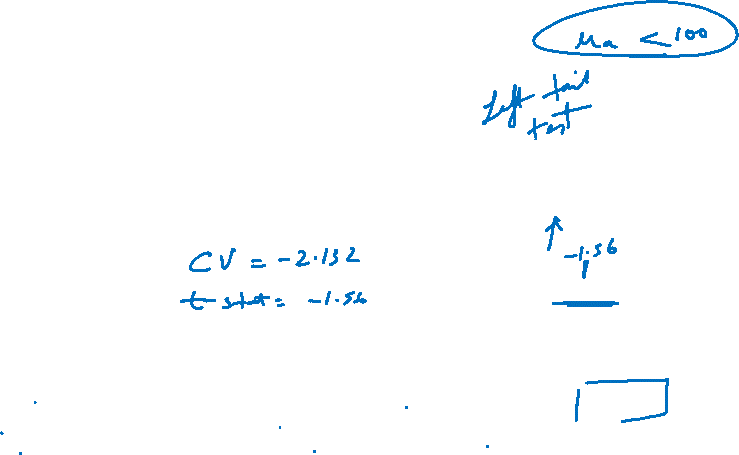 μa < 100
Left tail
test
CV = -2.132
-1.56
t stat = -1.56